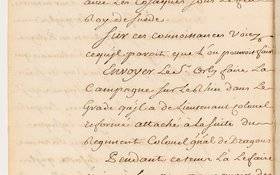 avec les Cosaques pour le
Roy de Suède.
Sur ces connoissances voicy
ce qu'il paroit que l'on pourroit faire
Envoyer Le Sr. Orly faire La
Campagne sur Le Rhin dans Le
Grade qu'il a de Lieutenant colonel
reformé attaché a la suite du
Regiment Colonel gnal de Dragons
Pendant ce tems La Le faire